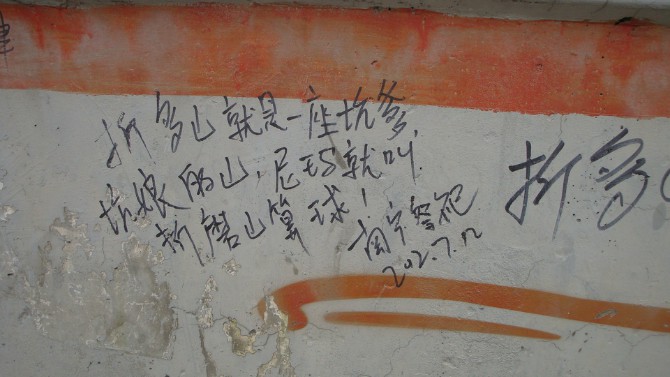 折多山就是一座坑爹
坑娘的山，尼玛就叫
折磨山算球！
2012.7.12
折多